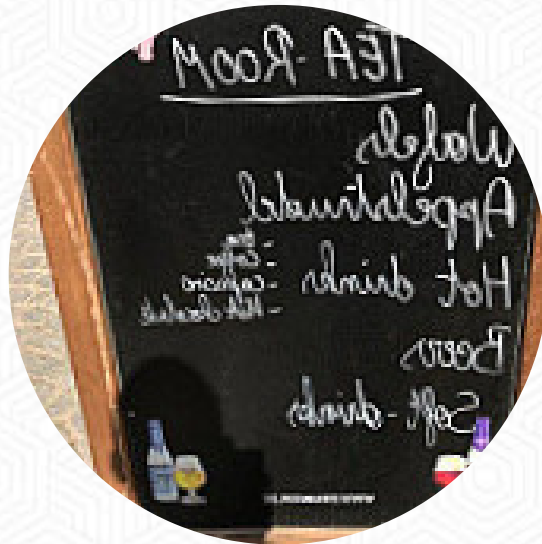 TEA-ROOM
Wafels
Appelstrudel
Hot drinks
- tea
- coffee
- capuccino
- Hot chocolate
Beers
Soft-drinks